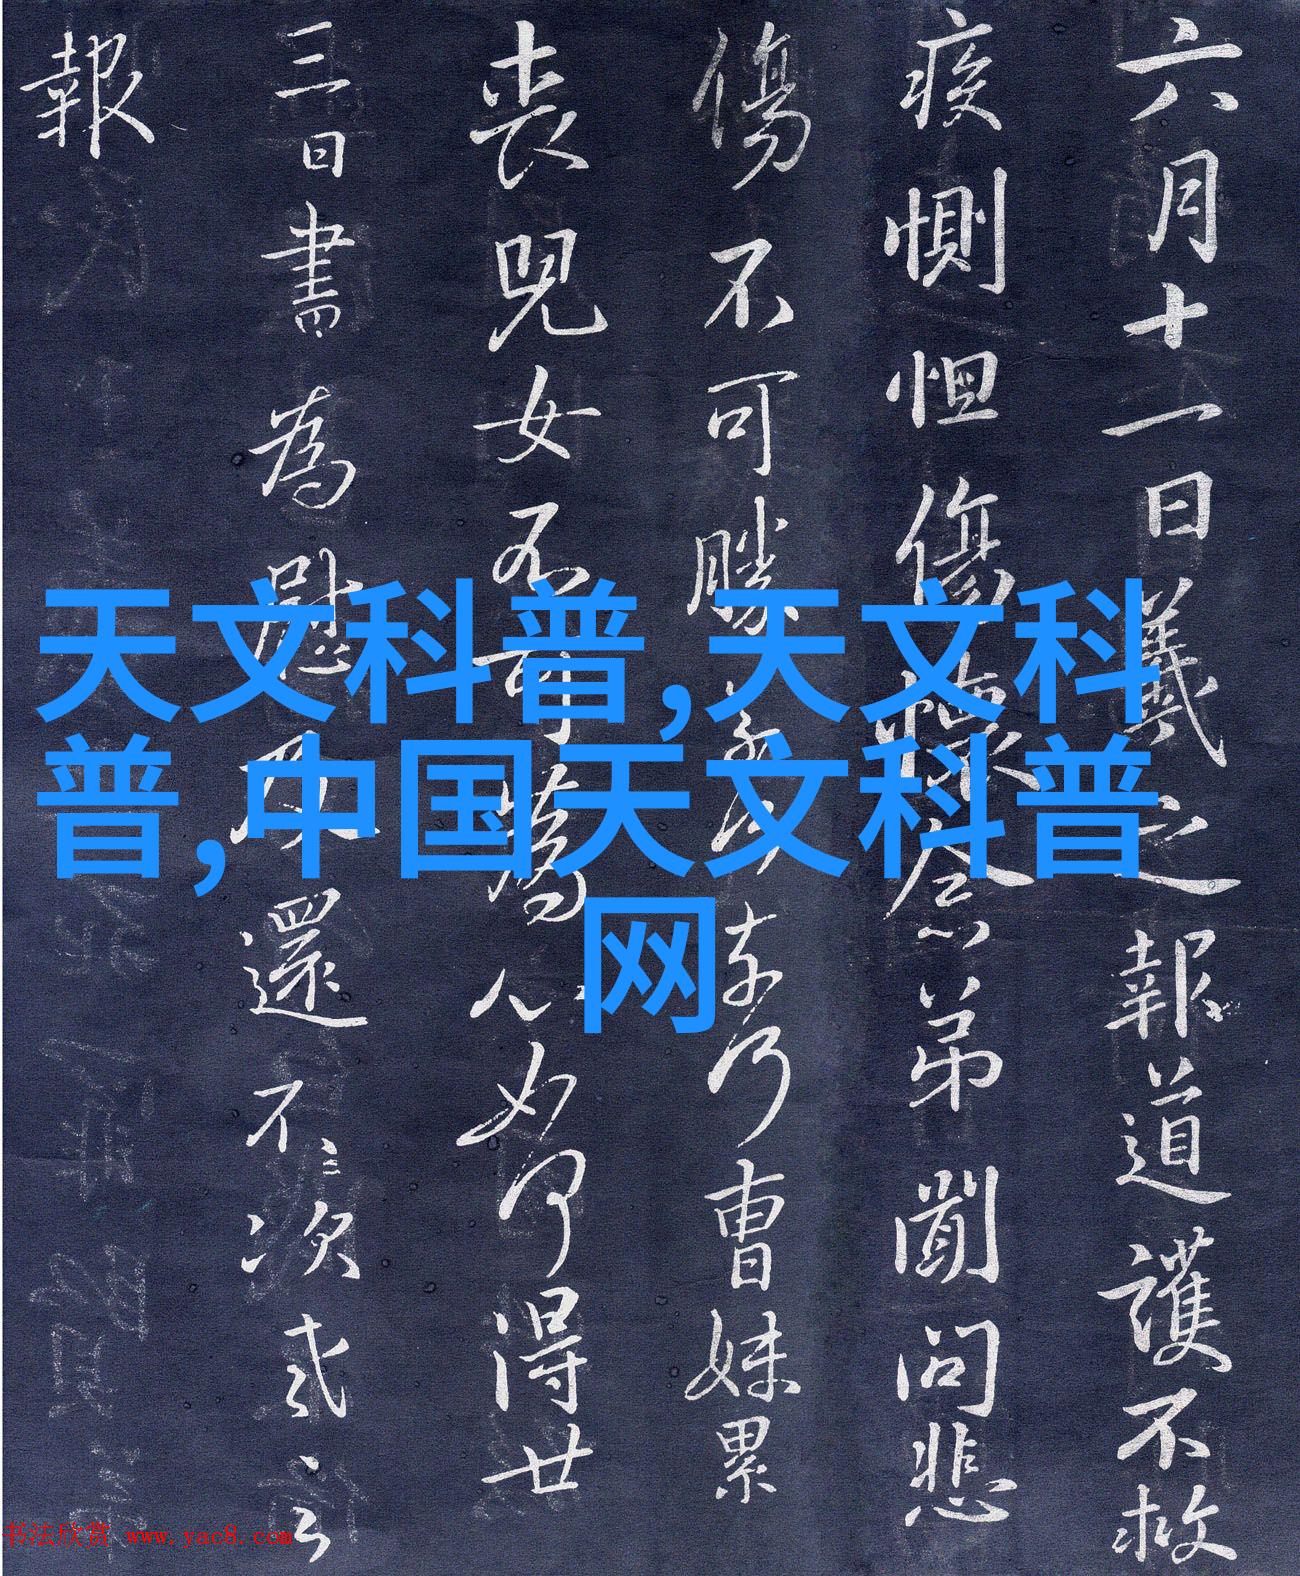 六月十一日羲之報道護不救
疾惻怛傷懷念弟聞問悲
傷不可勝 曹妹累
喪兒女不可為心如何得廿
三日書為慰 還不次
報
天文科普,天文科
普,中国天文科普
网
书法欣赏 www.yac8.com